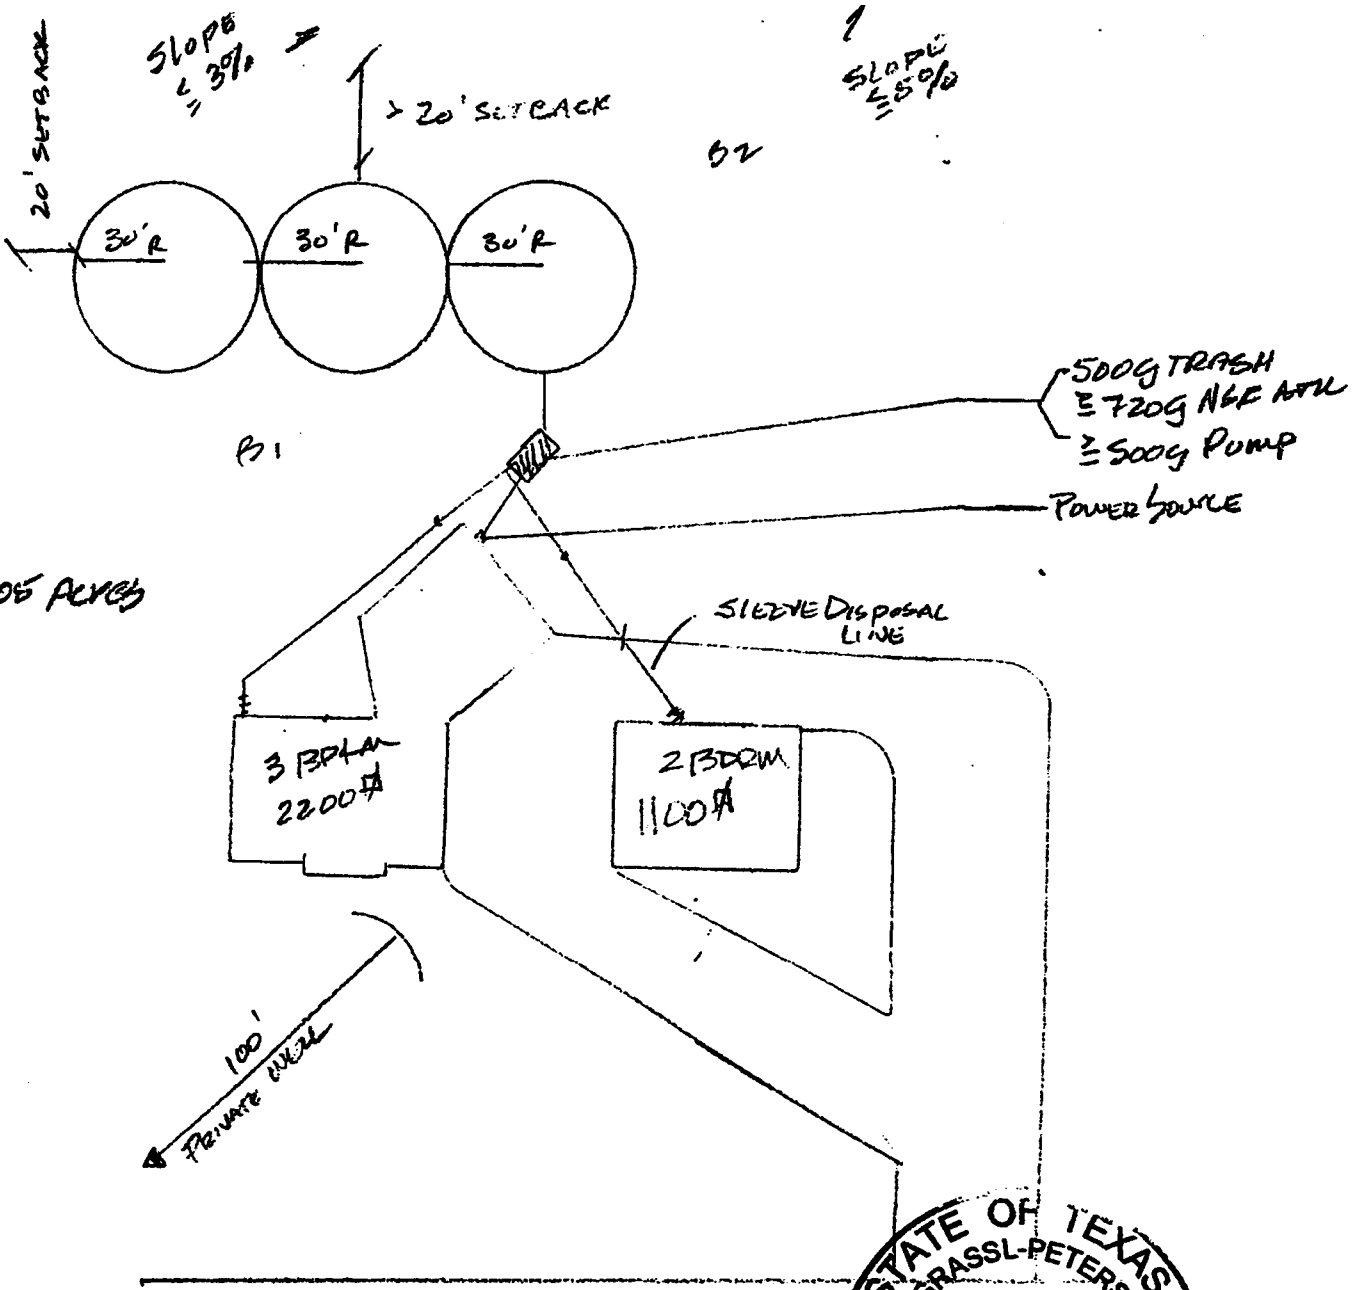 20' SETBACK
SLOPE
≤ 3%
> 20' SETBACK
SLOPE
≤5%
B2
30'R
30'R
30'R
500g TRASH
720g NSF
≥ 500g Pump
B1
POWER SOURCE
05 ACRES
SLEEVE DISPOSAL
LINE
3 BDRM
2200
2 BDRM
1100
100'
PRIVATE WELL
STATE OF TEXAS
GRASSL-PETERS